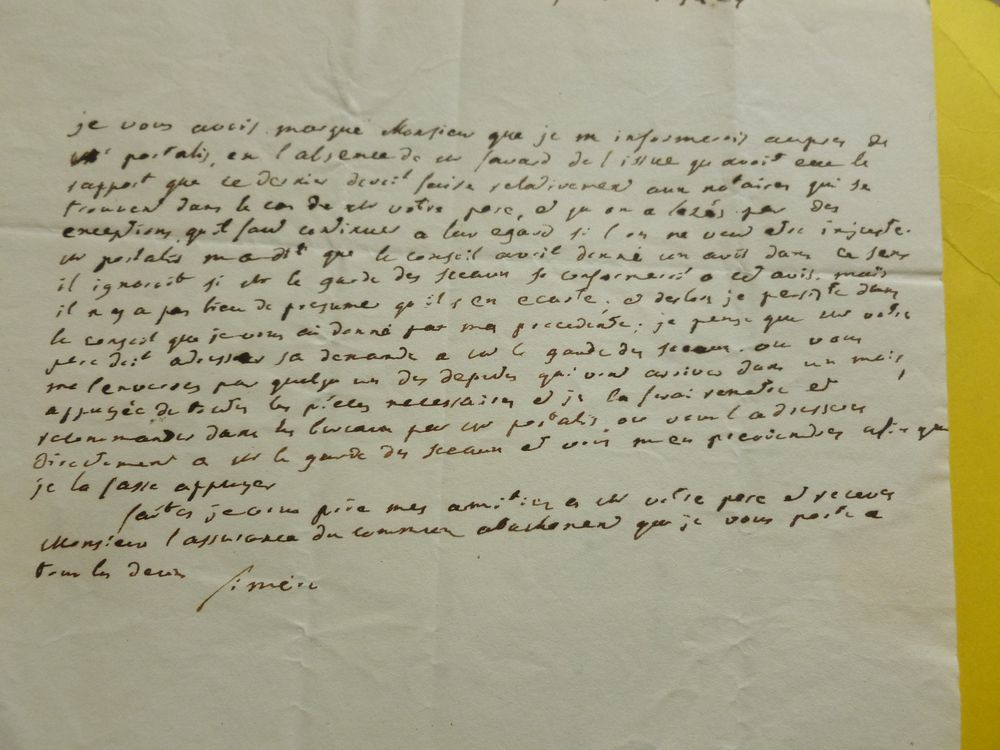 je vous avois marqué Monsieur que je m informerois aupres de
Mr portalis, en l'absence de Mr favard de l'issue qu'avoit eue le
rapport que ce dernier devoit faire relativement aux notaires qui se
trouvent dans le cas de Mr votre pere, et qu on a lezés par des
exceptions qu'il faut continuer a leur egard si l'on ne veut etre injuste.
Mr portalis m a dit que le conseil avoit donné un avis dans ce sens
il ignoroit si Mr le garde des sceaux se conformeroit a cet avis. mais
il n y a pas lieu de presumer qu'il s'en ecarte. et deslors je persiste dans
le conseil que je vous ai donné par ma precedente; je pense que Mr votre
pere doit adresser sa demande a Mr le garde des sceaux. ou vous
me l'enverres par quelqu un des deputés qui vont arriver dans un mois,
appuyée de toutes les pièces necessaires et je la ferai remettre et
recommander dans les bureaux par Mr portalis, ou vous l adresseres
directement a Mr le garde des sceaux et vous m en previendres afin que
je la fasse appuyer
faites je vous prie mes amitiés a Mr votre pere et receves
Monsieur l'assurance du commun attachement que je vous porte a
tous les deux
Siméon